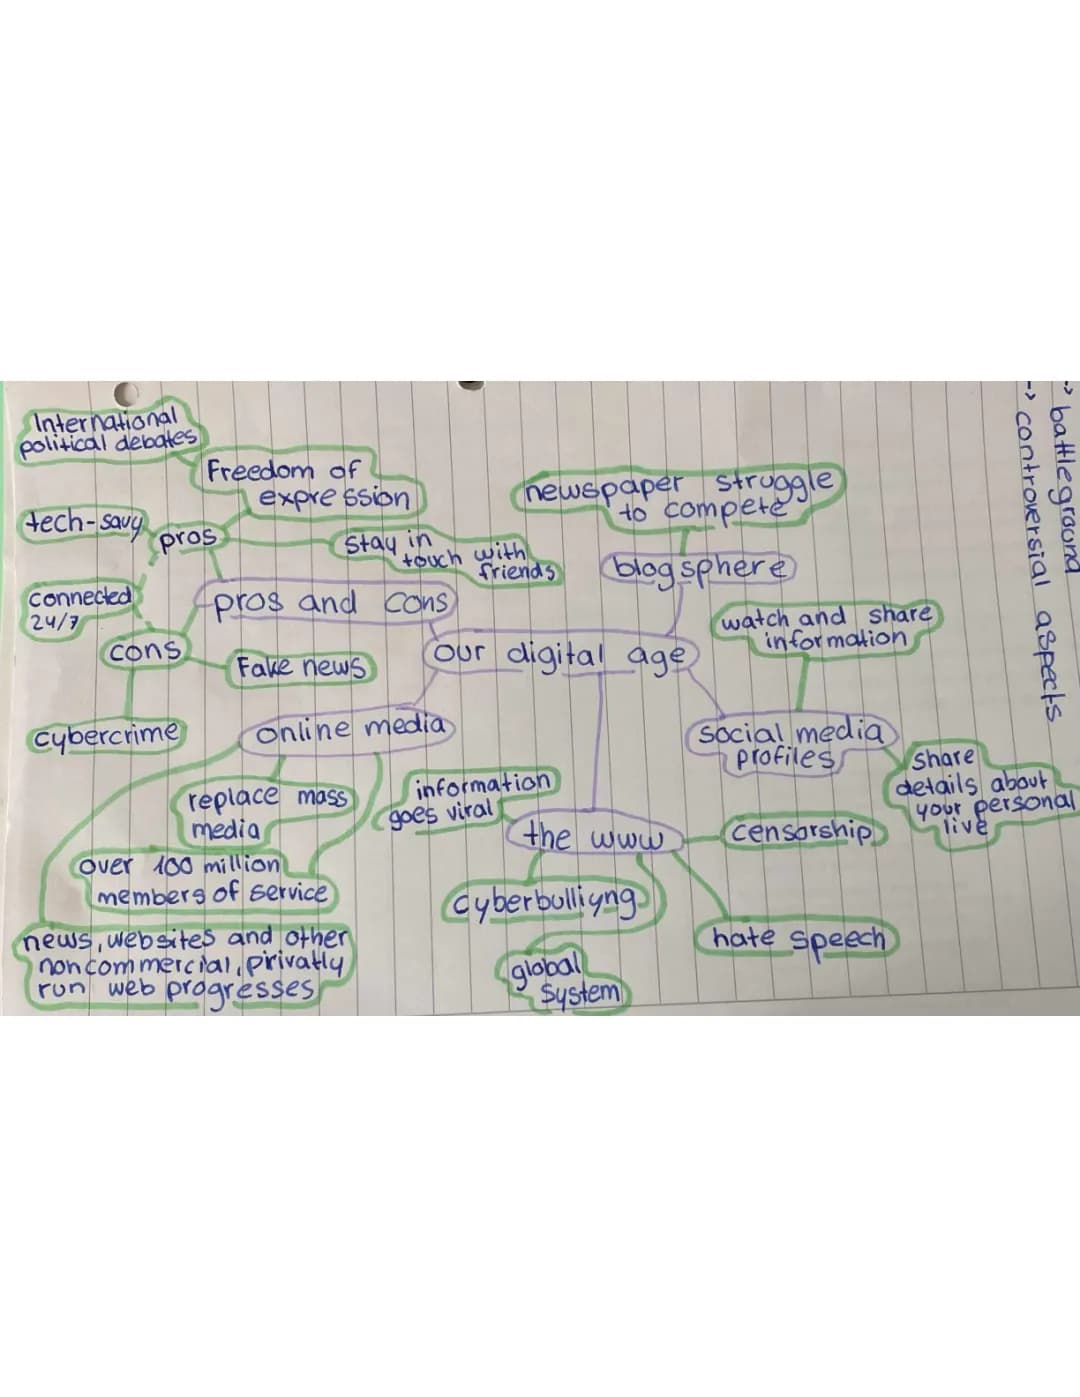 International
political debates
Freedom of
expression
tech-savy
pros
stay in
touch with
friends
connected
24/7
pros and cons
cons
Fake news
cybercrime
our digital age
newspaper struggle
to compete
blogsphere
watch and share
information
social media
profiles
share
details about
your personal
live
online media
replace mass
media
over 100 million
members of service
news, websites and other
noncommercial, privatly
run web progresses
information
goes viral
the www
censorship
cyberbulliyng
hate speech
global
system
-> battleground
-> controversial aspects